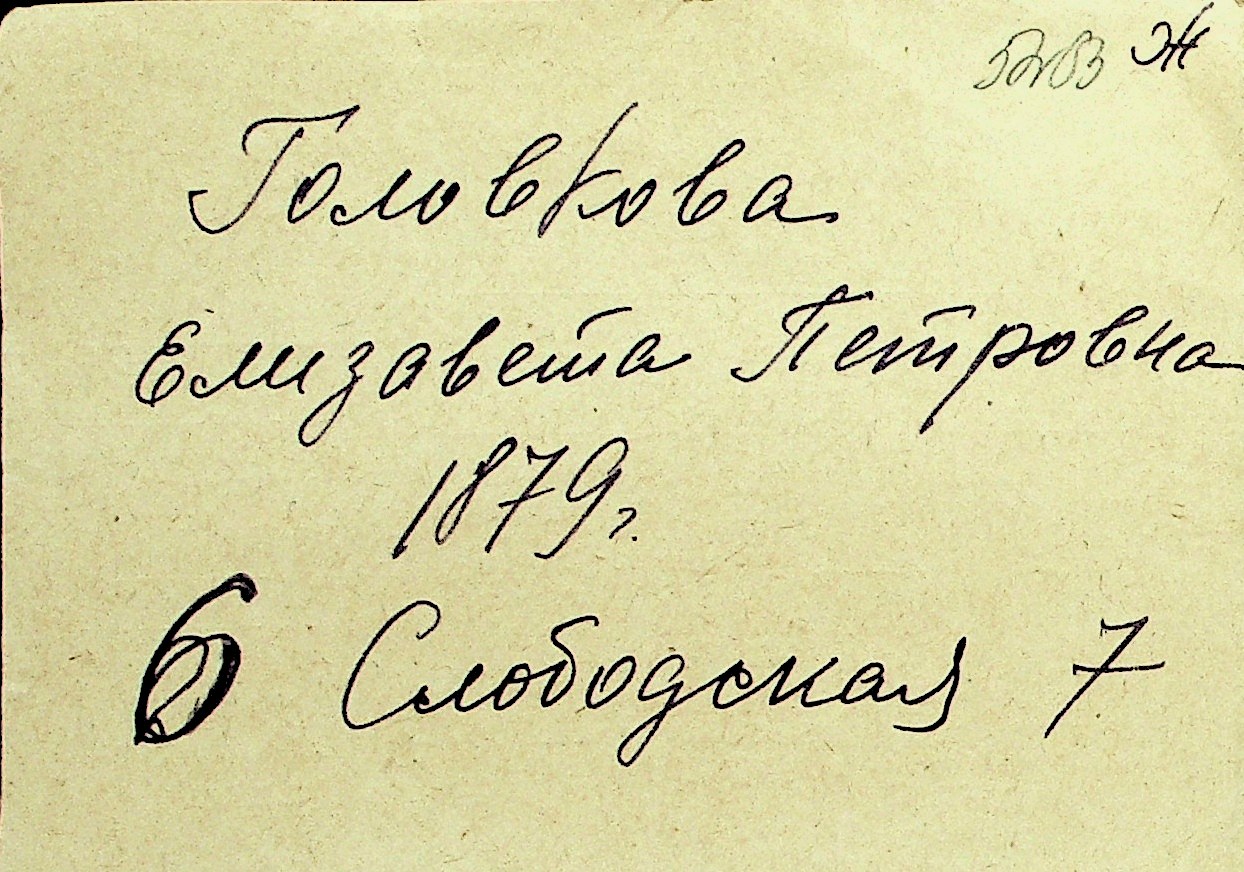 Ж
Головкова
Елизавета Петровна
1879г.
6 Слободская 7